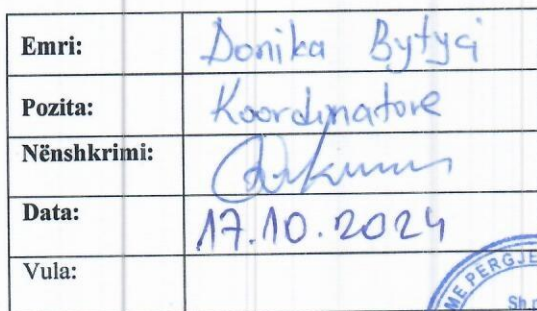 Emri: Donika Bytyçi
Pozita: Koordinatore
Nënshkrimi:
Data: 17.10.2024
Vula:
ME PERGJE
Sh.p